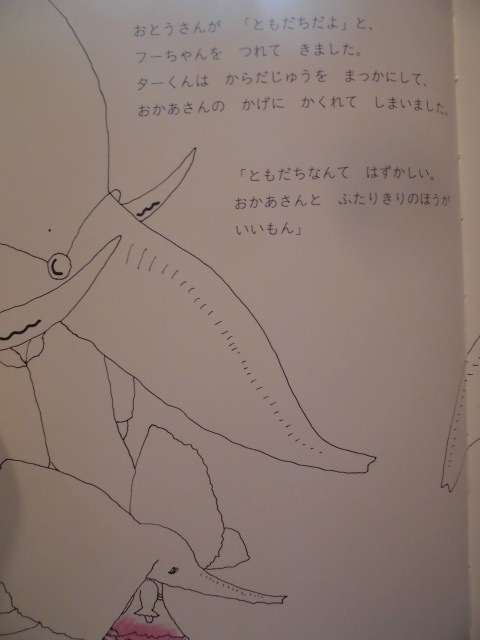 おとうさんが　「ともだちだよ」と、
フーちゃんを　つれて　きました。
ターくんは　からだじゅうを　まっかにして、
おかあさんの　かげに　かくれて　しまいました。
「ともだちなんて　はずかしい。
おかあさんと　ふたりきりのほうが
いいもん」